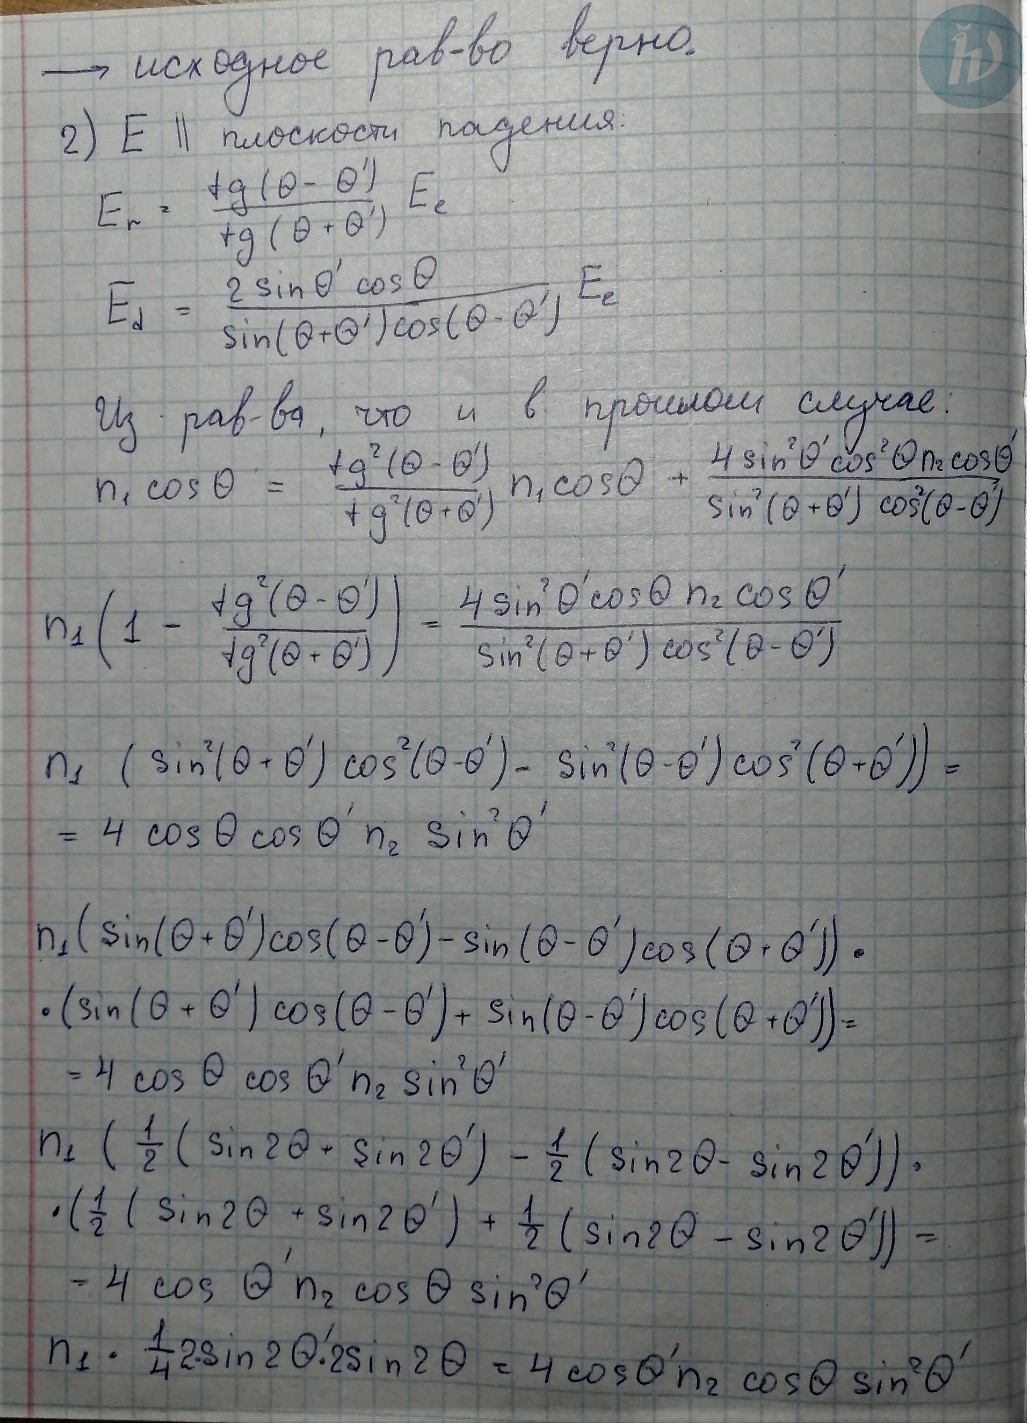 → исходное рав-во верно.
2) E || плоскости падения:
E_r = tg(θ - θ') / tg(θ + θ') E_e
E_d = 2 sin θ' cos θ / sin(θ+θ') cos(θ-θ') E_e
Из рав-ва, что и в прошлом случае:
n₁ cos θ = tg²(θ - θ') / tg²(θ+θ') n₁ cos θ + 4 sin²θ' cos²θ n₂ cos θ' / sin²(θ+θ') cos²(θ-θ')
n₁ (1 - tg²(θ - θ') / tg²(θ + θ')) = 4 sin²θ' cos θ n₂ cos θ' / sin²(θ+θ') cos²(θ-θ')
n₁ (sin²(θ+θ') cos²(θ-θ') - sin²(θ-θ') cos²(θ+θ')) =
= 4 cos θ cos θ' n₂ sin²θ'
n₁ (sin(θ+θ') cos(θ-θ') - sin(θ-θ') cos(θ+θ')) ·
· (sin(θ+θ') cos(θ-θ') + sin(θ-θ') cos(θ+θ')) =
= 4 cos θ cos θ' n₂ sin²θ'
n₁ (1/2 (sin 2θ + sin 2θ') - 1/2 (sin 2θ - sin 2θ')) ·
· (1/2 (sin 2θ + sin 2θ') + 1/2 (sin 2θ - sin 2θ')) =
= 4 cos θ' n₂ cos θ sin²θ'
n₁ · 1/4 2·sin 2θ' · 2 sin 2θ = 4 cos θ' n₂ cos θ sin²θ'